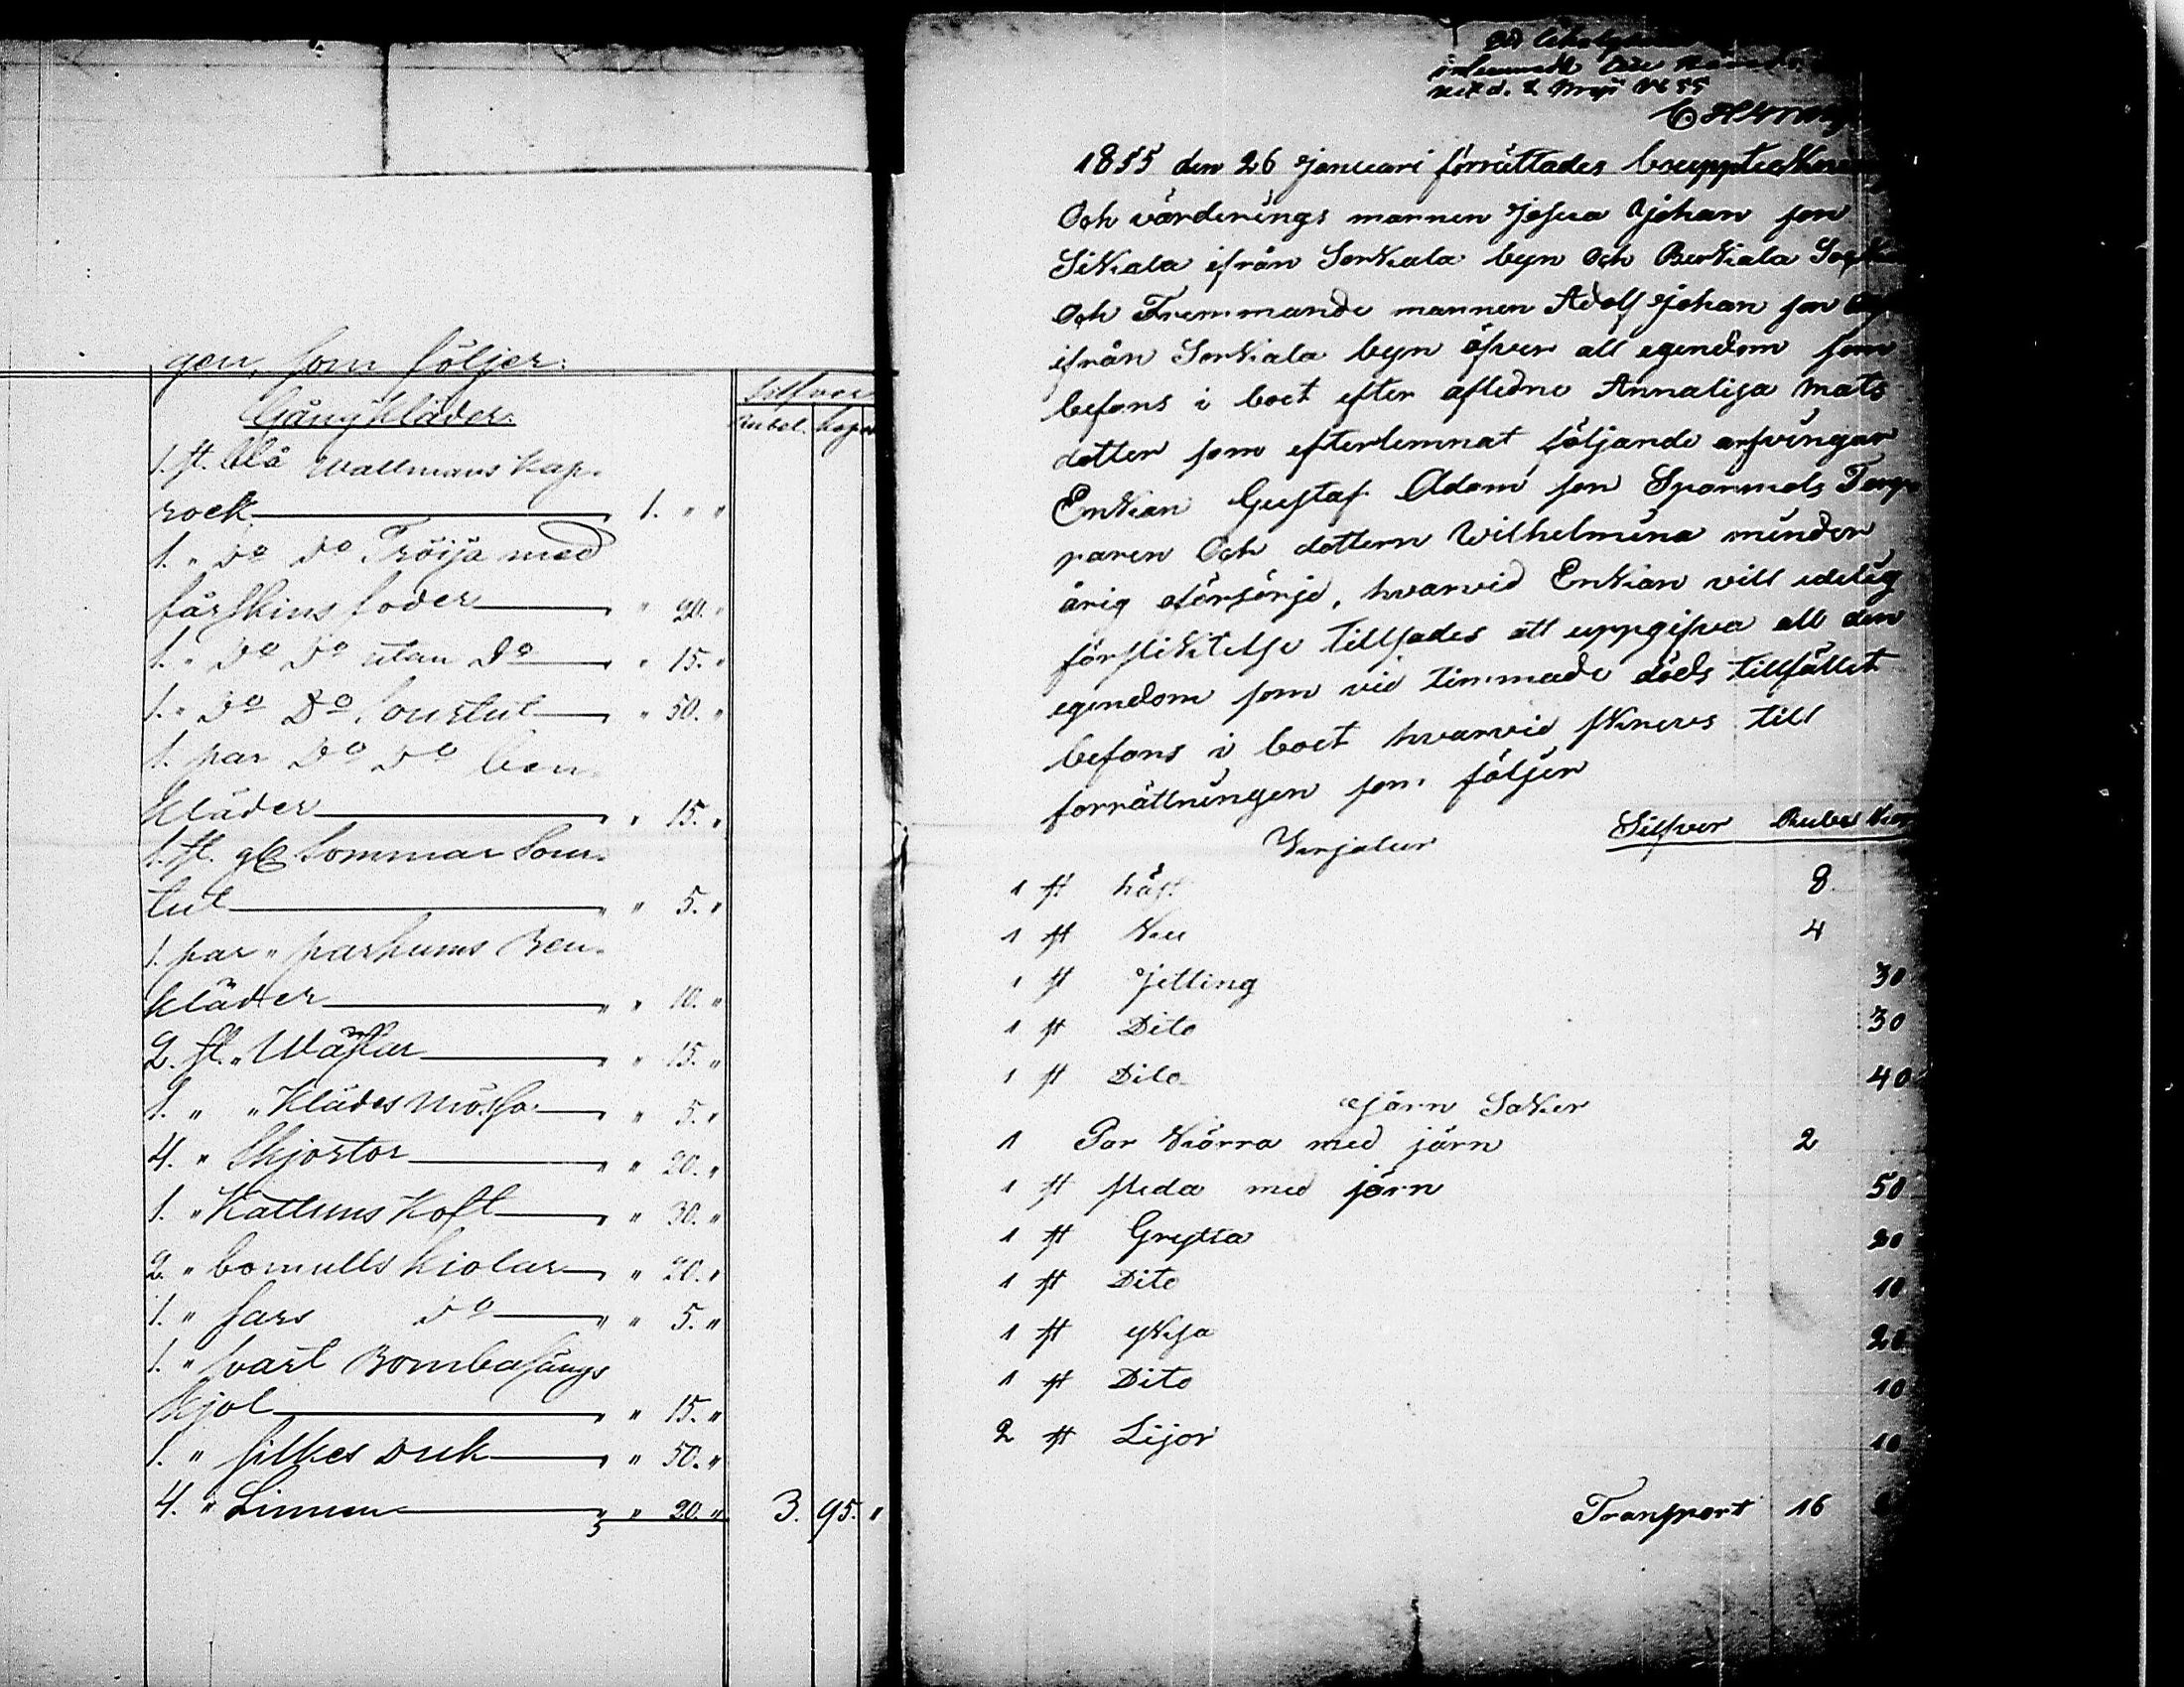 gen, som följer:
Gångkläder.
Silfver
Rubel. Kop
1. st. blå Wallmans Kap-
rock 1. " "
1. " Do Do Tröija med
fårskins foder " 20. "
1. " Do Do utan Do " 15. "
1. " Do Do Sourtut " 50. "
1. par Do Do ben-
kläder " 15. "
1. st. gl Sommar Sour-
tut " " 5. "
1. par " parkums Ben-
kläder " " 10. "
2. st. " Wästar " " 15. "
1. " " Klädes Mössa " 5. "
4. " Skjortor " " 20. "
1. " Kattuns Koft " " 30. "
2. " bomulls Kiolar " 20. "
1. " fars Do " " 5. "
1. " svart Bombasängs
Kjol " " 15. "
1. " silkes Duk " " 50. "
4. " Linnen " " 20. " 3. 95. "
d. 2 Maji 1855
1855 den 26 Januari förrättades
Och värderings mannen Josua Johan son
Sikala ifrån Sorkiala byn Och Birkiala
Och Fremmande mannen Adolf Johan son
ifrån Sorkiala byn öfver all egendom som
befans i boet efter aflidne Annalisa Mats
dotter som efterlemnat följande arfvingar
Enkian Gustaf Adam son Sparmals Torp
paren Och dottern Wilhelmina minder
årig oförsörjd, hvarvid Enkian vill edelig
förpliktelse tillsades att uppgifva all den
egendom som vid timmade döds tillfället
befans i boet hvarvid skrevs till
forrättningen som följer
Silfver Rubel Kop
Krjatur
1 st häst 8
1 st Ku 4
1 st Jelling 30
1 st Dito 30
1 st Dito 40
Järn Saker
1 Par Kiärra med järn 2
1 st slida med järn 50
1 st Grytta 20
1 st Dito 10
1 st yksa 20
1 st Dito 10
2 st Lijor 10
Transport 16